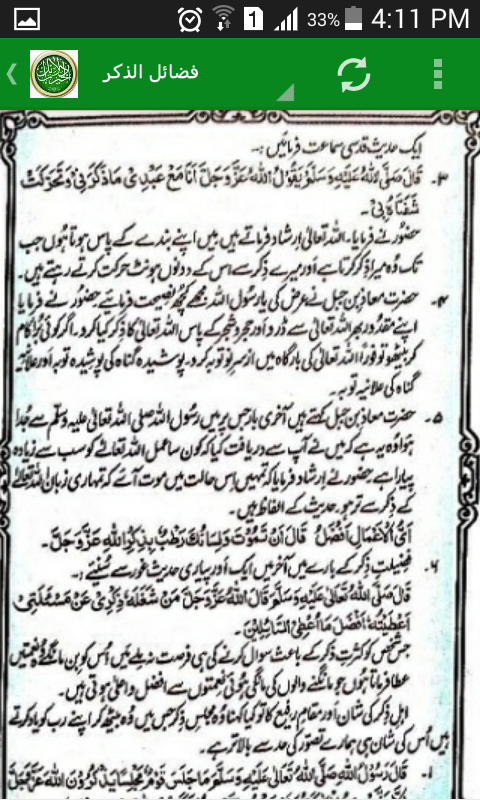 33% 4:11 PM
فضائل الذكر
ایک حدیث قدسی سماعت فرمائیں :۔
۳۔ قَالَ صَلَّی اللہُ عَلَیْہِ وَسَلَّمَ یَقُوْلُ اللہُ عَزَّ وَجَلَّ اَنَا مَعَ عَبْدِیْ مَا ذَکَرَنِیْ وَتَحَرَّکَتْ
شَفَتَاہُ بِیْ۔
حضور نے فرمایا۔ اللہ تعالیٰ ارشاد فرماتے ہیں میں اپنے بندے کے پاس ہوتا ہوں جب
تک وُہ میرا ذکر کرتا ہے اور میرے ذکر سے اس کے دونوں ہونٹ حرکت کرتے رہتے ہیں۔
۴۔ حضرت معاذ بن جبل نے عرض کی یا رسول اللہ مجھے کچھ نصیحت فرمائیے حضور نے فرمایا
اپنے مقدور بھر اللہ تعالیٰ سے ڈرو اور حجر و شجر کے پاس اللہ تعالیٰ کا ذکر کیا کرو۔ اگر کوئی بُرا کام
کر بیٹھو تو فوراً اللہ تعالیٰ کی بارگاہ میں از سرِ نو توبہ کرو۔ پوشیدہ گناہ کی پوشیدہ توبہ اور علانیہ
گناہ کی علانیہ توبہ۔
۵۔ حضرت معاذ بن جبل کہتے ہیں آخری بار جس پر میں رسُول اللہ صلی اللہ تعالیٰ علیہ وسلم سے جُدا
ہوا وُہ یہ ہے کہ میں نے آپ سے دریافت کیا کہ کون سا عمل اللہ تعالےٰ کو سب سے زیادہ
پیارا ہے حضور نے ارشاد فرمایا کہ تمہیں اِس حالت میں موت آئے کہ تمہاری زبان اللہ تعالیٰ
کے ذکر سے تر ہو۔ حدیث کے الفاظ ہیں۔
اَیُّ الْاَعْمَالِ اَفْضَلُ قَالَ اَنْ تَمُوْتَ وَلِسَانُکَ رَطْبٌ بِذِکْرِ اللہِ عَزَّ وَجَلَّ۔
۶۔ فضیلتِ ذکر کے بارے میں آخر میں ایک اور پیاری حدیث غور سے سُنیئے :۔
قَالَ صَلَّی اللہُ تَعَالٰی عَلَیْہِ وَسَلَّمَ قَالَ اللہُ عَزَّ وَجَلَّ مَنْ شَغَلَہٗ ذِکْرِیْ عَنْ مَسْئَلَتِیْ
اَعْطَیْتُہٗ اَفْضَلَ مَا اُعْطِی السَّائِلِیْنَ۔
جس شخص کو کثرتِ ذکر کے باعث سوال کرنے کی ہی فرصت نہ ملے میں اُس کو بن مانگے وُہ نعمتیں
عطا فرماتا ہوں جو مانگنے والوں کی مانگی ہُوئی نعمتوں سے افضل و اعلیٰ ہوتی ہیں۔
اہلِ ذکر کی شان اور مقامِ رفیع کا تو کیا کہنا وُہ مجلسِ ذکر جس میں وُہ بیٹھ کر اپنے رب کو یاد کرتے
ہیں اُس کی شان ہی ہمارے تصور کی حد سے بالاتر ہے۔
۱۔ قَالَ رَسُوْلُ اللہِ صَلَّی اللہُ تَعَالٰی عَلَیْہِ وَسَلَّمَ مَا جَلَسَ قَوْمٌ مَجْلِسًا یَذْکُرُوْنَ اللہَ عَزَّ وَجَلَّ